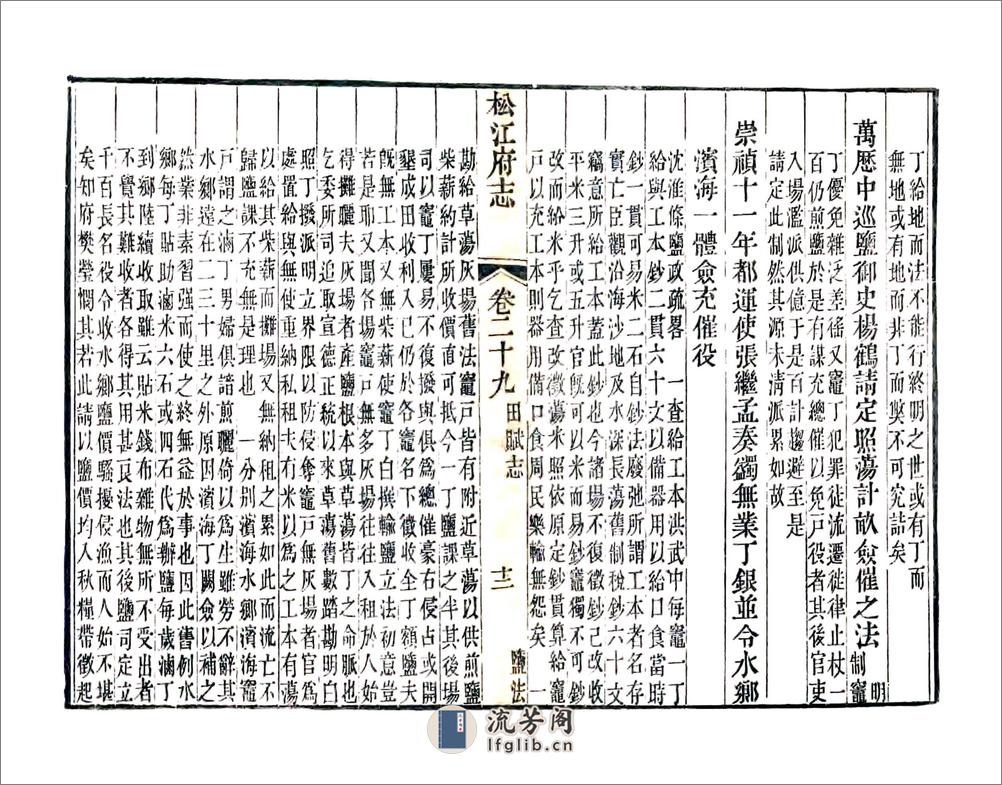 丁給地而法不能行終明之世或有丁而
無地或有地而非丁而獘不可究詰矣
萬歷中巡鹽御史楊鶴請定照蕩計畝僉催之法明制竈
丁優免雜泛差徭又竈丁犯罪徒流遷徙律止杖一
百仍煎鹽於是有謀充總催以免戶役者其後官吏
入場濫派供億于是百計趨避至是
請定此制然其源未清派累如故
崇禎十一年都運使張繼孟奏蠲無業丁銀並令水鄉
濱海一體僉充催役
沈淮條鹽政疏畧 一查給工本洪武中每竈一丁
給與工本鈔二貫六十文以備器用以給口食當時
鈔一貫可易米二石自鈔法廢弛所謂工本者名存
實亡臣觀沿海沙地及水深長蕩舊制稅鈔六十文
竊意所給工本蓋此鈔也今諸場不復徵鈔己改收
平米三升或五升官旣可以米而易鈔竈獨不可鈔
改而給米乎乞查改徵蕩米照依原定鈔貫算給竈
戶以充工本則器用備口食周民樂輸無怨矣 一
松江府志 卷二十九 田賦志 十二 鹽法
勘給草蕩灰場舊法竈戶皆有附近草蕩以供煎鹽
柴薪約計所收價直可抵今一丁鹽課之半其後場
司以竈丁屢易不復撥與俱爲總催豪右侵占或開
墾成田收利入已仍於各竈名下徵收全丁額鹽夫
旣無工本又無柴薪使竈丁白撰輸鹽立法初意豈
若是耶又聞各場竈戶無多灰場往往入租於人始
得攤曬夫灰場者產鹽根本與草蕩皆丁之命脈也
乞委所司追取宣德正統以前草蕩舊數踏勘明白
照丁撥派明立界限以防侵奪竈戶無灰場者官爲
處置給與無使乞重納私租夫有米以爲之工本有蕩
以給其柴薪而攤場又無納租之累如此而流亡不
歸鹽課不充無是理也 一分別濱海水鄉濱海竈
戶謂之滷丁男婦俱諳煎曬倚以爲生雖勞不辭其
水鄉遠在二三十里之外原因濱海丁闕僉以補之
然業非素習强而使之終無益於事也因此舊例水
鄉每丁貼助滷米六石或四石代爲辦鹽每歲滷丁
到鄉陸續收取雖云貼米錢布雜物無所不受出者
不覺其難收者各得其用甚良法也其後鹽司定立
千百長名役令收水鄉鹽價騷擾侵漁而人始不堪
矣知府樊瑩憫其若此請以鹽價均入秋糧帶徵起
流芳阁
lfglib.cn